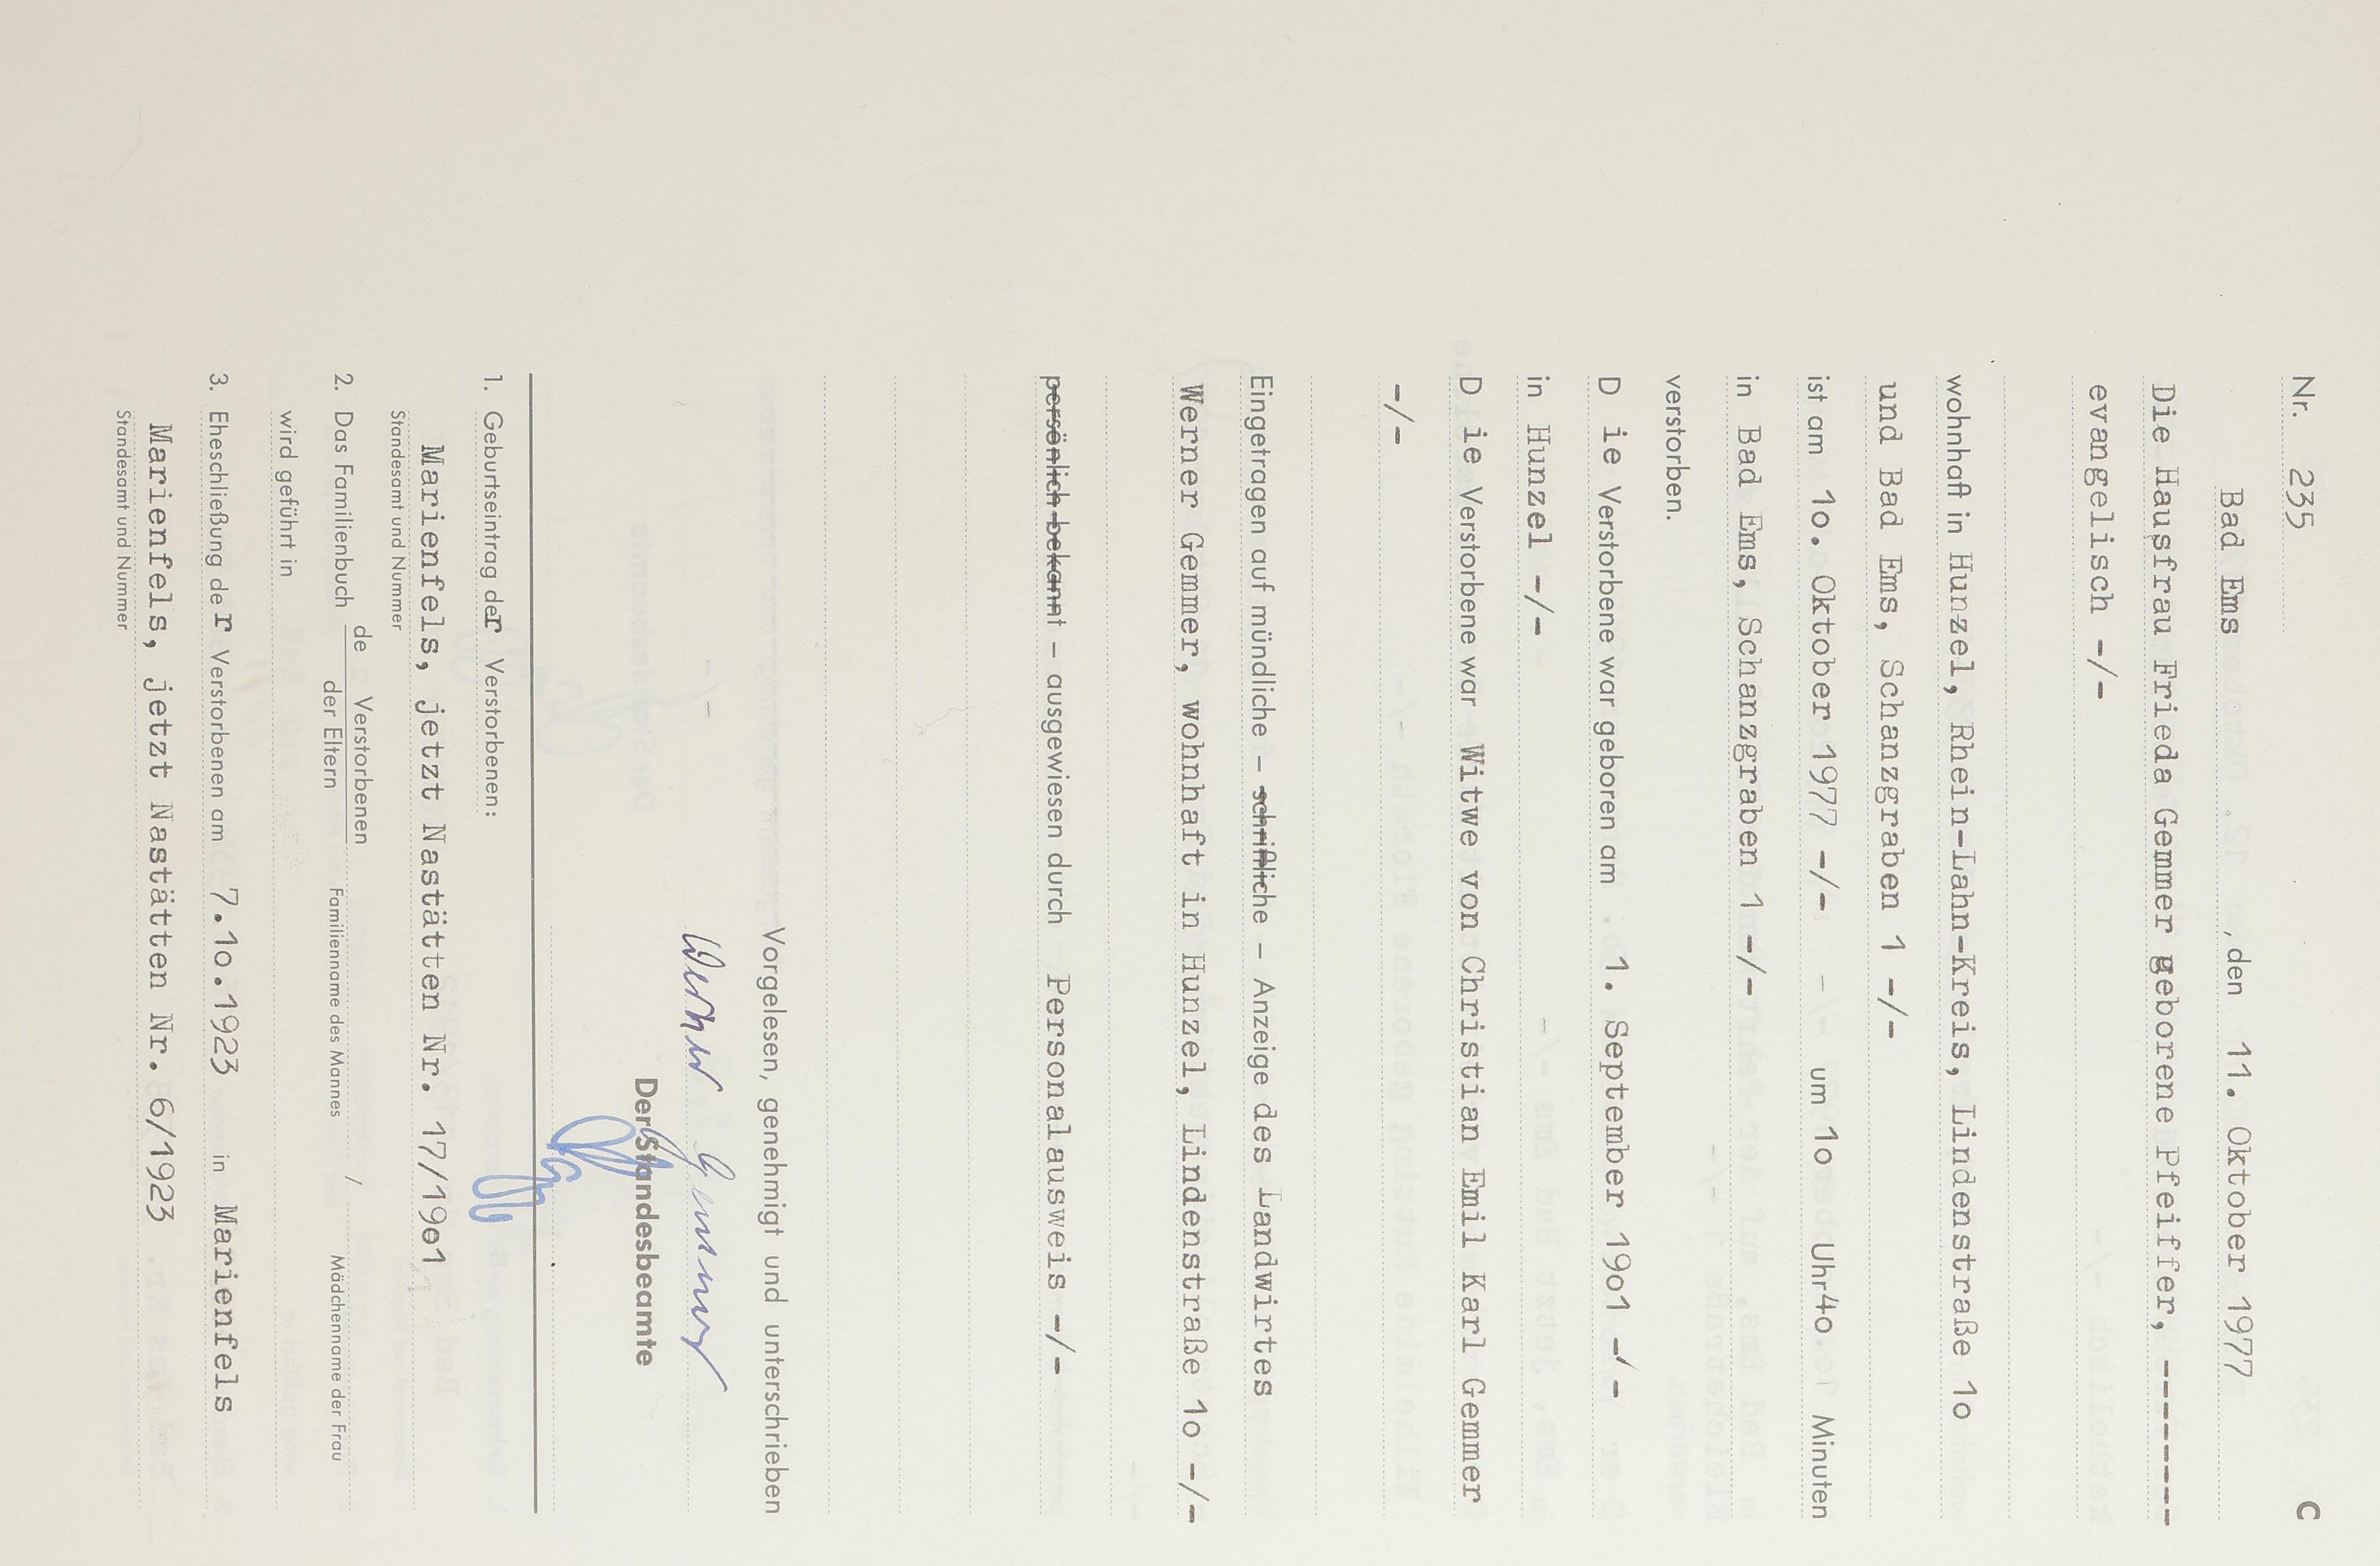 Nr. 235 C
Bad Ems , den 11. Oktober 1977
Die Hausfrau Frieda Gemmer geborene Pfeiffer, --------
evangelisch -/-
wohnhaft in Hunzel, Rhein-Lahn-Kreis, Lindenstraße 1o
und Bad Ems, Schanzgraben 1 -/-
ist am 1o. Oktober 1977 -/- um 1o Uhr 4o Minuten
in Bad Ems, Schanzgraben 1 -/-
verstorben.
D ie Verstorbene war geboren am 1. September 19o1 -/-
in Hunzel -/-
D ie Verstorbene war Witwe von Christian Emil Karl Gemmer
-/-
Eingetragen auf mündliche – schriftliche – Anzeige des Landwirtes
Werner Gemmer, wohnhaft in Hunzel, Lindenstraße 1o -/-
persönlich bekannt – ausgewiesen durch Personalausweis -/-
Vorgelesen, genehmigt und unterschrieben
Werner Gemmer
Der Standesbeamte
1. Geburtseintrag der Verstorbenen:
Marienfels, jetzt Nastätten Nr. 17/19o1
Standesamt und Nummer
2. Das Familienbuch de Verstorbenen
der Eltern Familienname des Mannes / Mädchenname der Frau
wird geführt in
3. Eheschließung der Verstorbenen am 7.1o.1923 in Marienfels
Marienfels, jetzt Nastätten Nr. 6/1923
Standesamt und Nummer